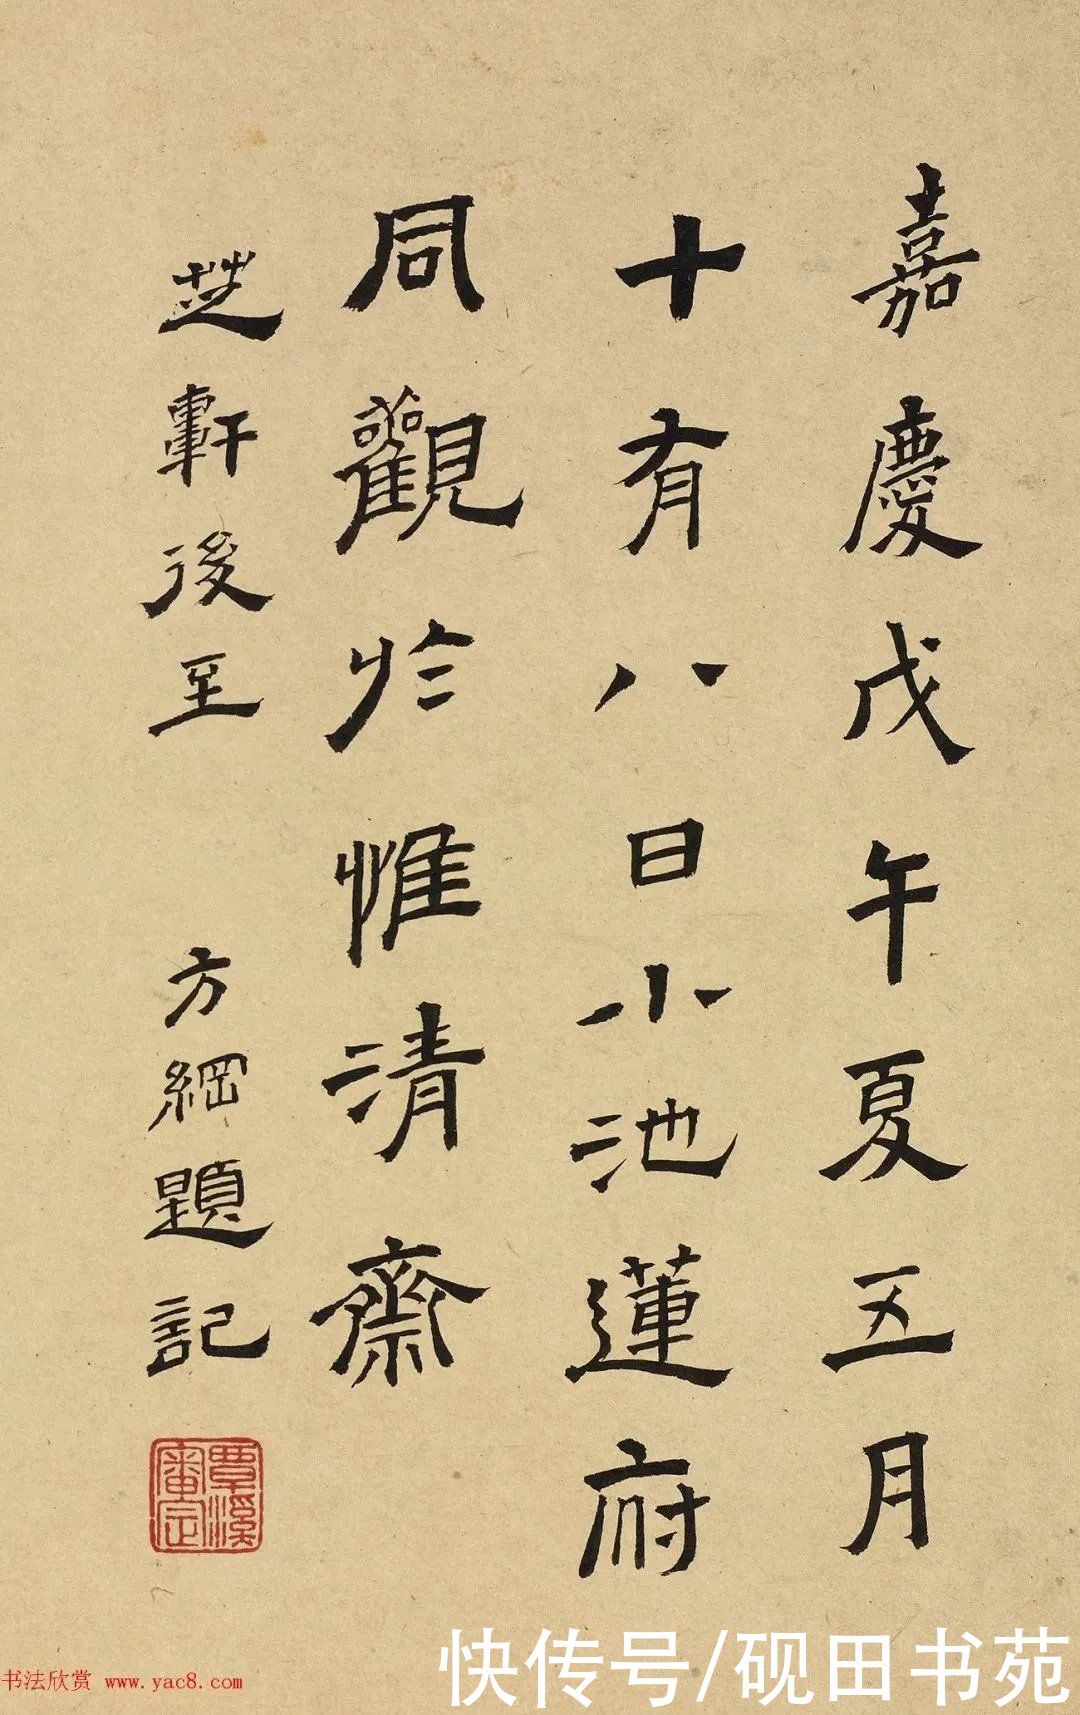 嘉慶戊午夏五月
十有八日小池蓮府
同觀於惟清齋
芝軒後至　方綱題記
覃溪
審定
快传号/砚田书苑
书法欣赏 www.yac8.com